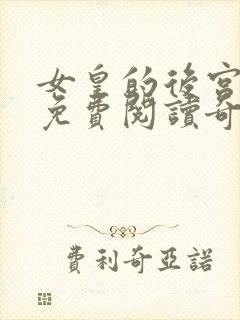 女皇的後宮
免費閱讀奇
費利奇亞諾